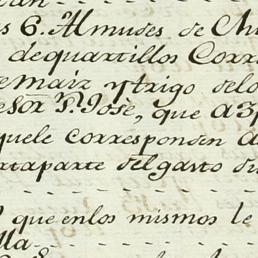 s 6. Almudes de Chi
dequartillos Corr
emaiz, ytrigo delo
esor Pn. Jose, que a3p
quele corresponden a
xtaparte delgasto di
que enlos mismos le
lla